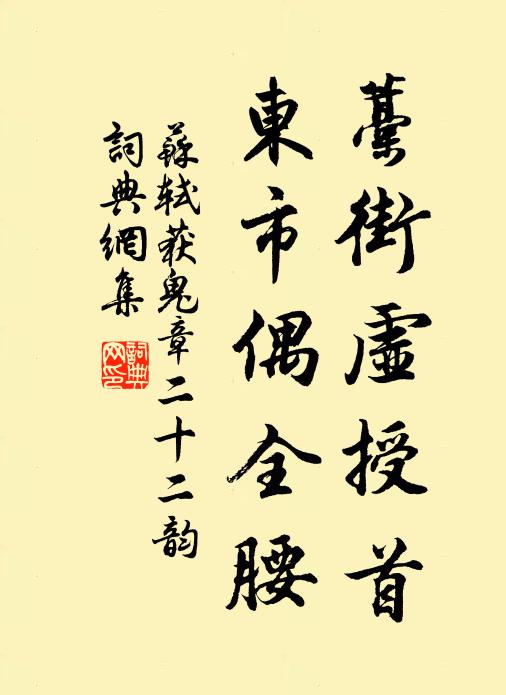 藁街虛授首
東市偶全腰
蘇軾获鬼章二十二韵
詞典網集
詞典网印